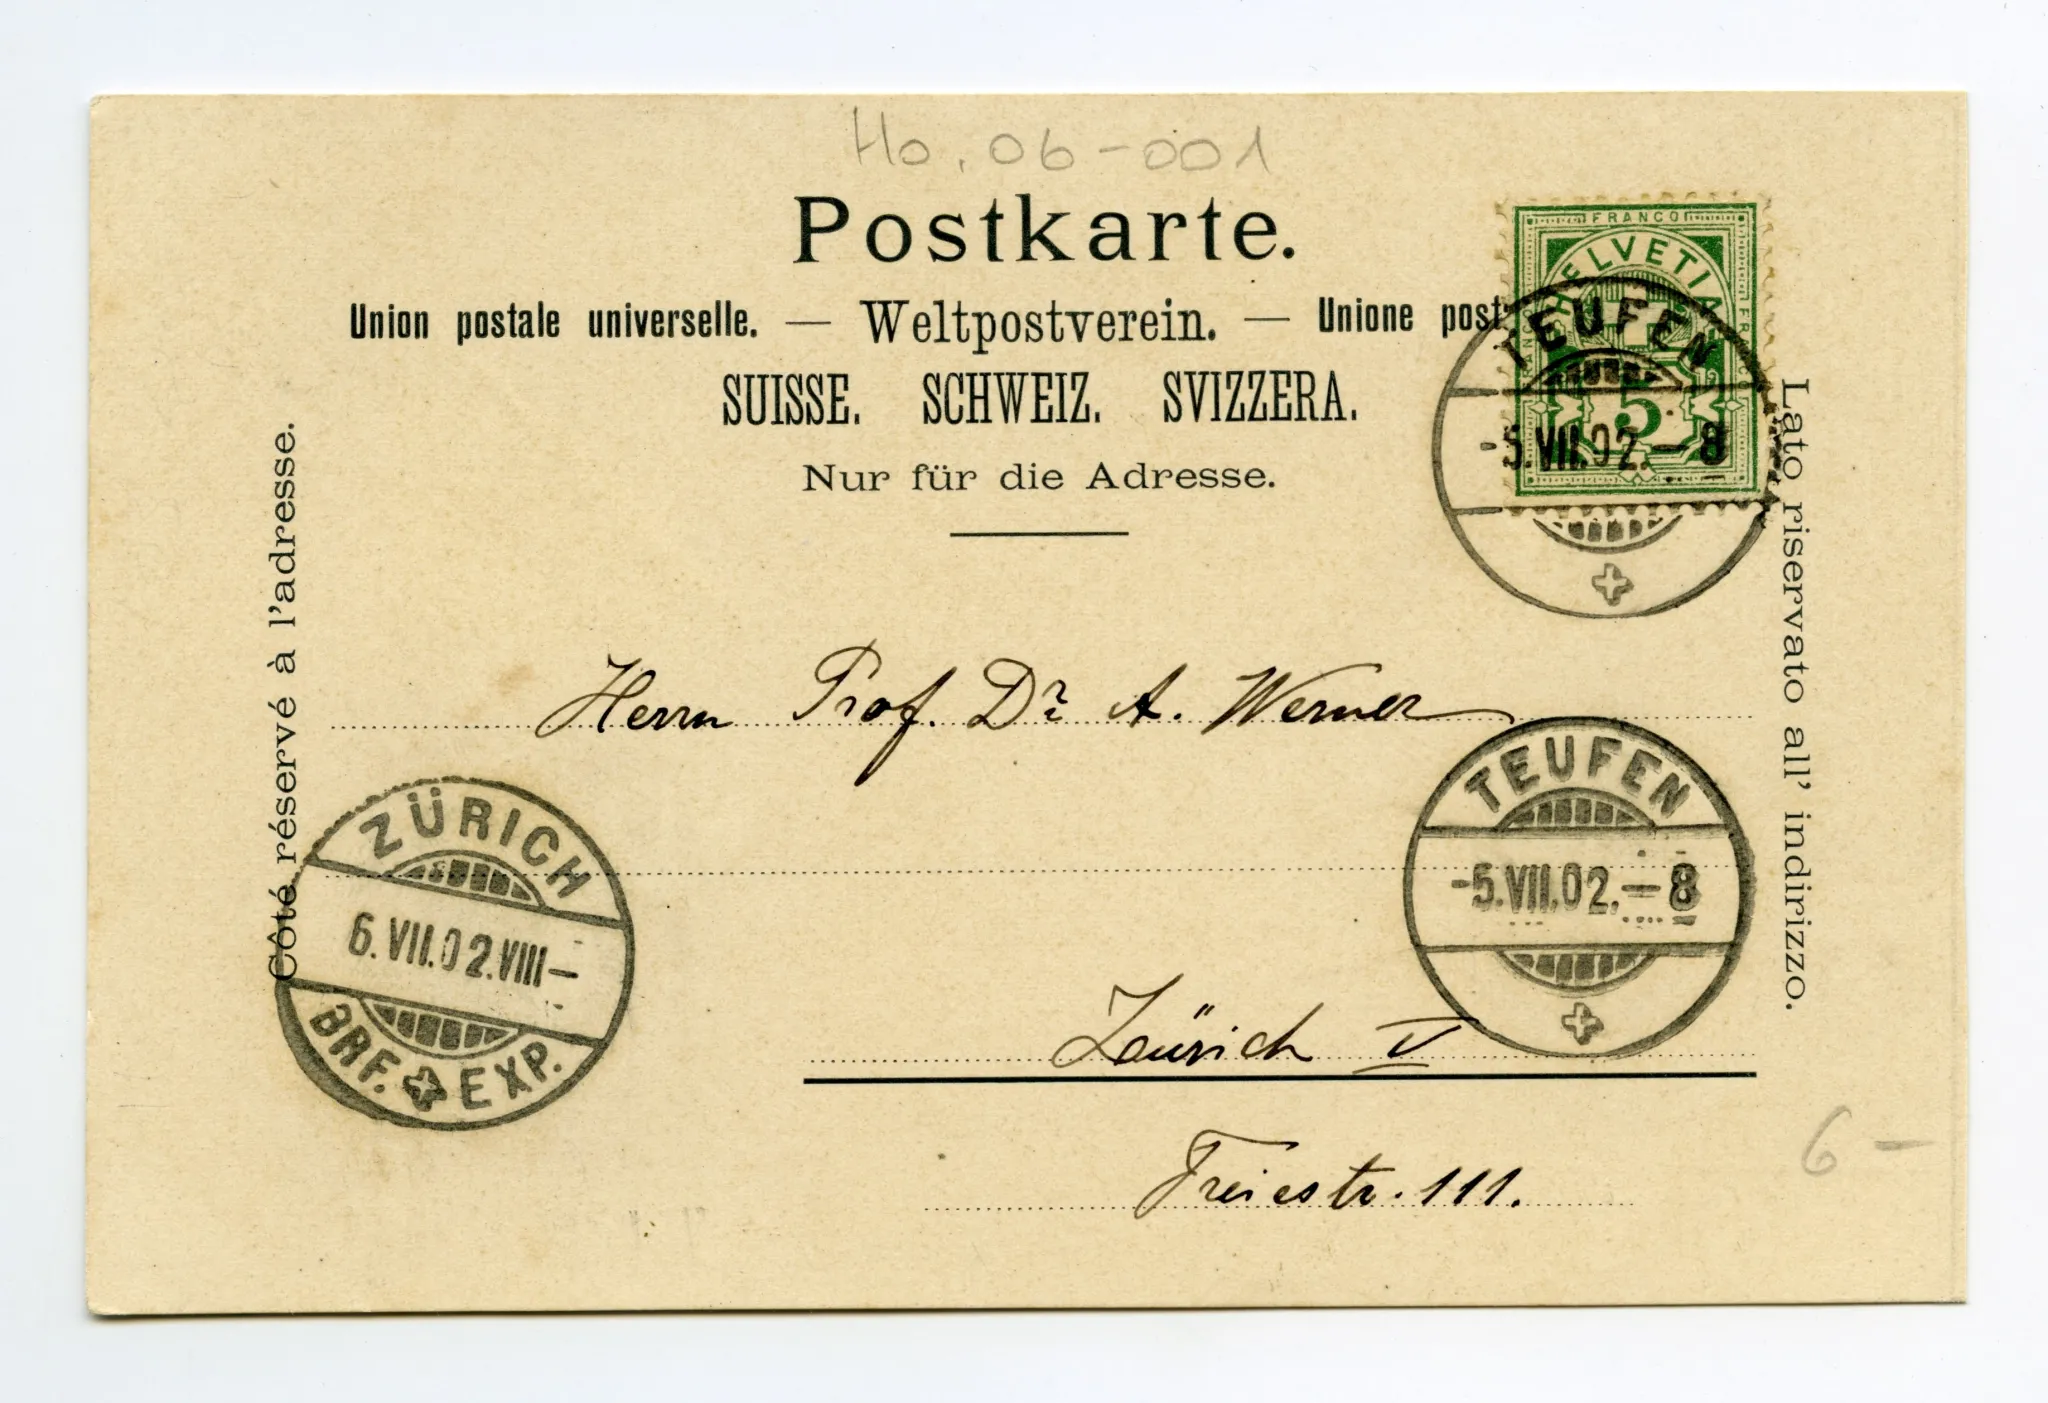 Ho. 06-001
Postkarte.
Union postale universelle. — Weltpostverein. — Unione post
SUISSE. SCHWEIZ. SVIZZERA.
Nur für die Adresse.
FRANCO
HELVETIA
5
TEUFEN
-5.VII.02.-8
Côté réservé à l'adresse.
Lato riservato all' indirizzo.
Herrn Prof. Dr A. Werner
ZÜRICH
6.VII.02.VIII-
BRF. EXP.
TEUFEN
-5.VII.02.-8
Zürich V
Freiestr. 111.
6 —